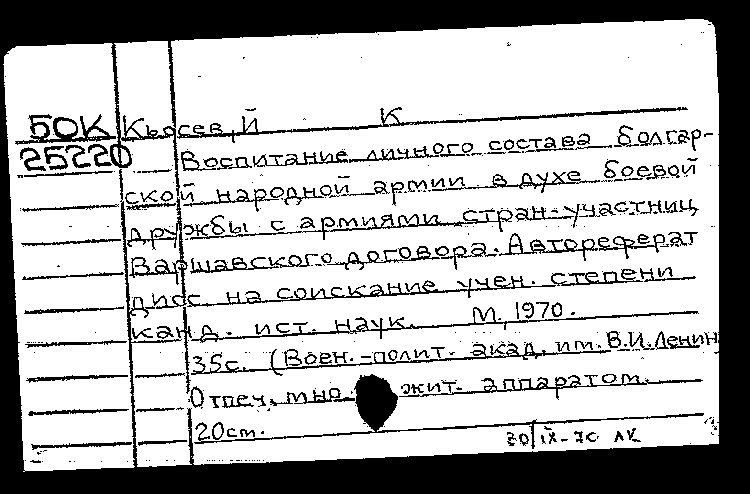 БОК Кьосев, Й К
25220 Воспитание личного состава болгар-
ской народной армии в духе боевой
дружбы с армиями стран-участниц
Варшавского договора. Автореферат
дисс. на соискание учен. степени
канд. ист. наук. М., 1970.
35с. (Воен.-полит. акад. им. В.И.Ленин
Отпеч. мно жит. аппаратом.
20см.
30/IX-70 АК